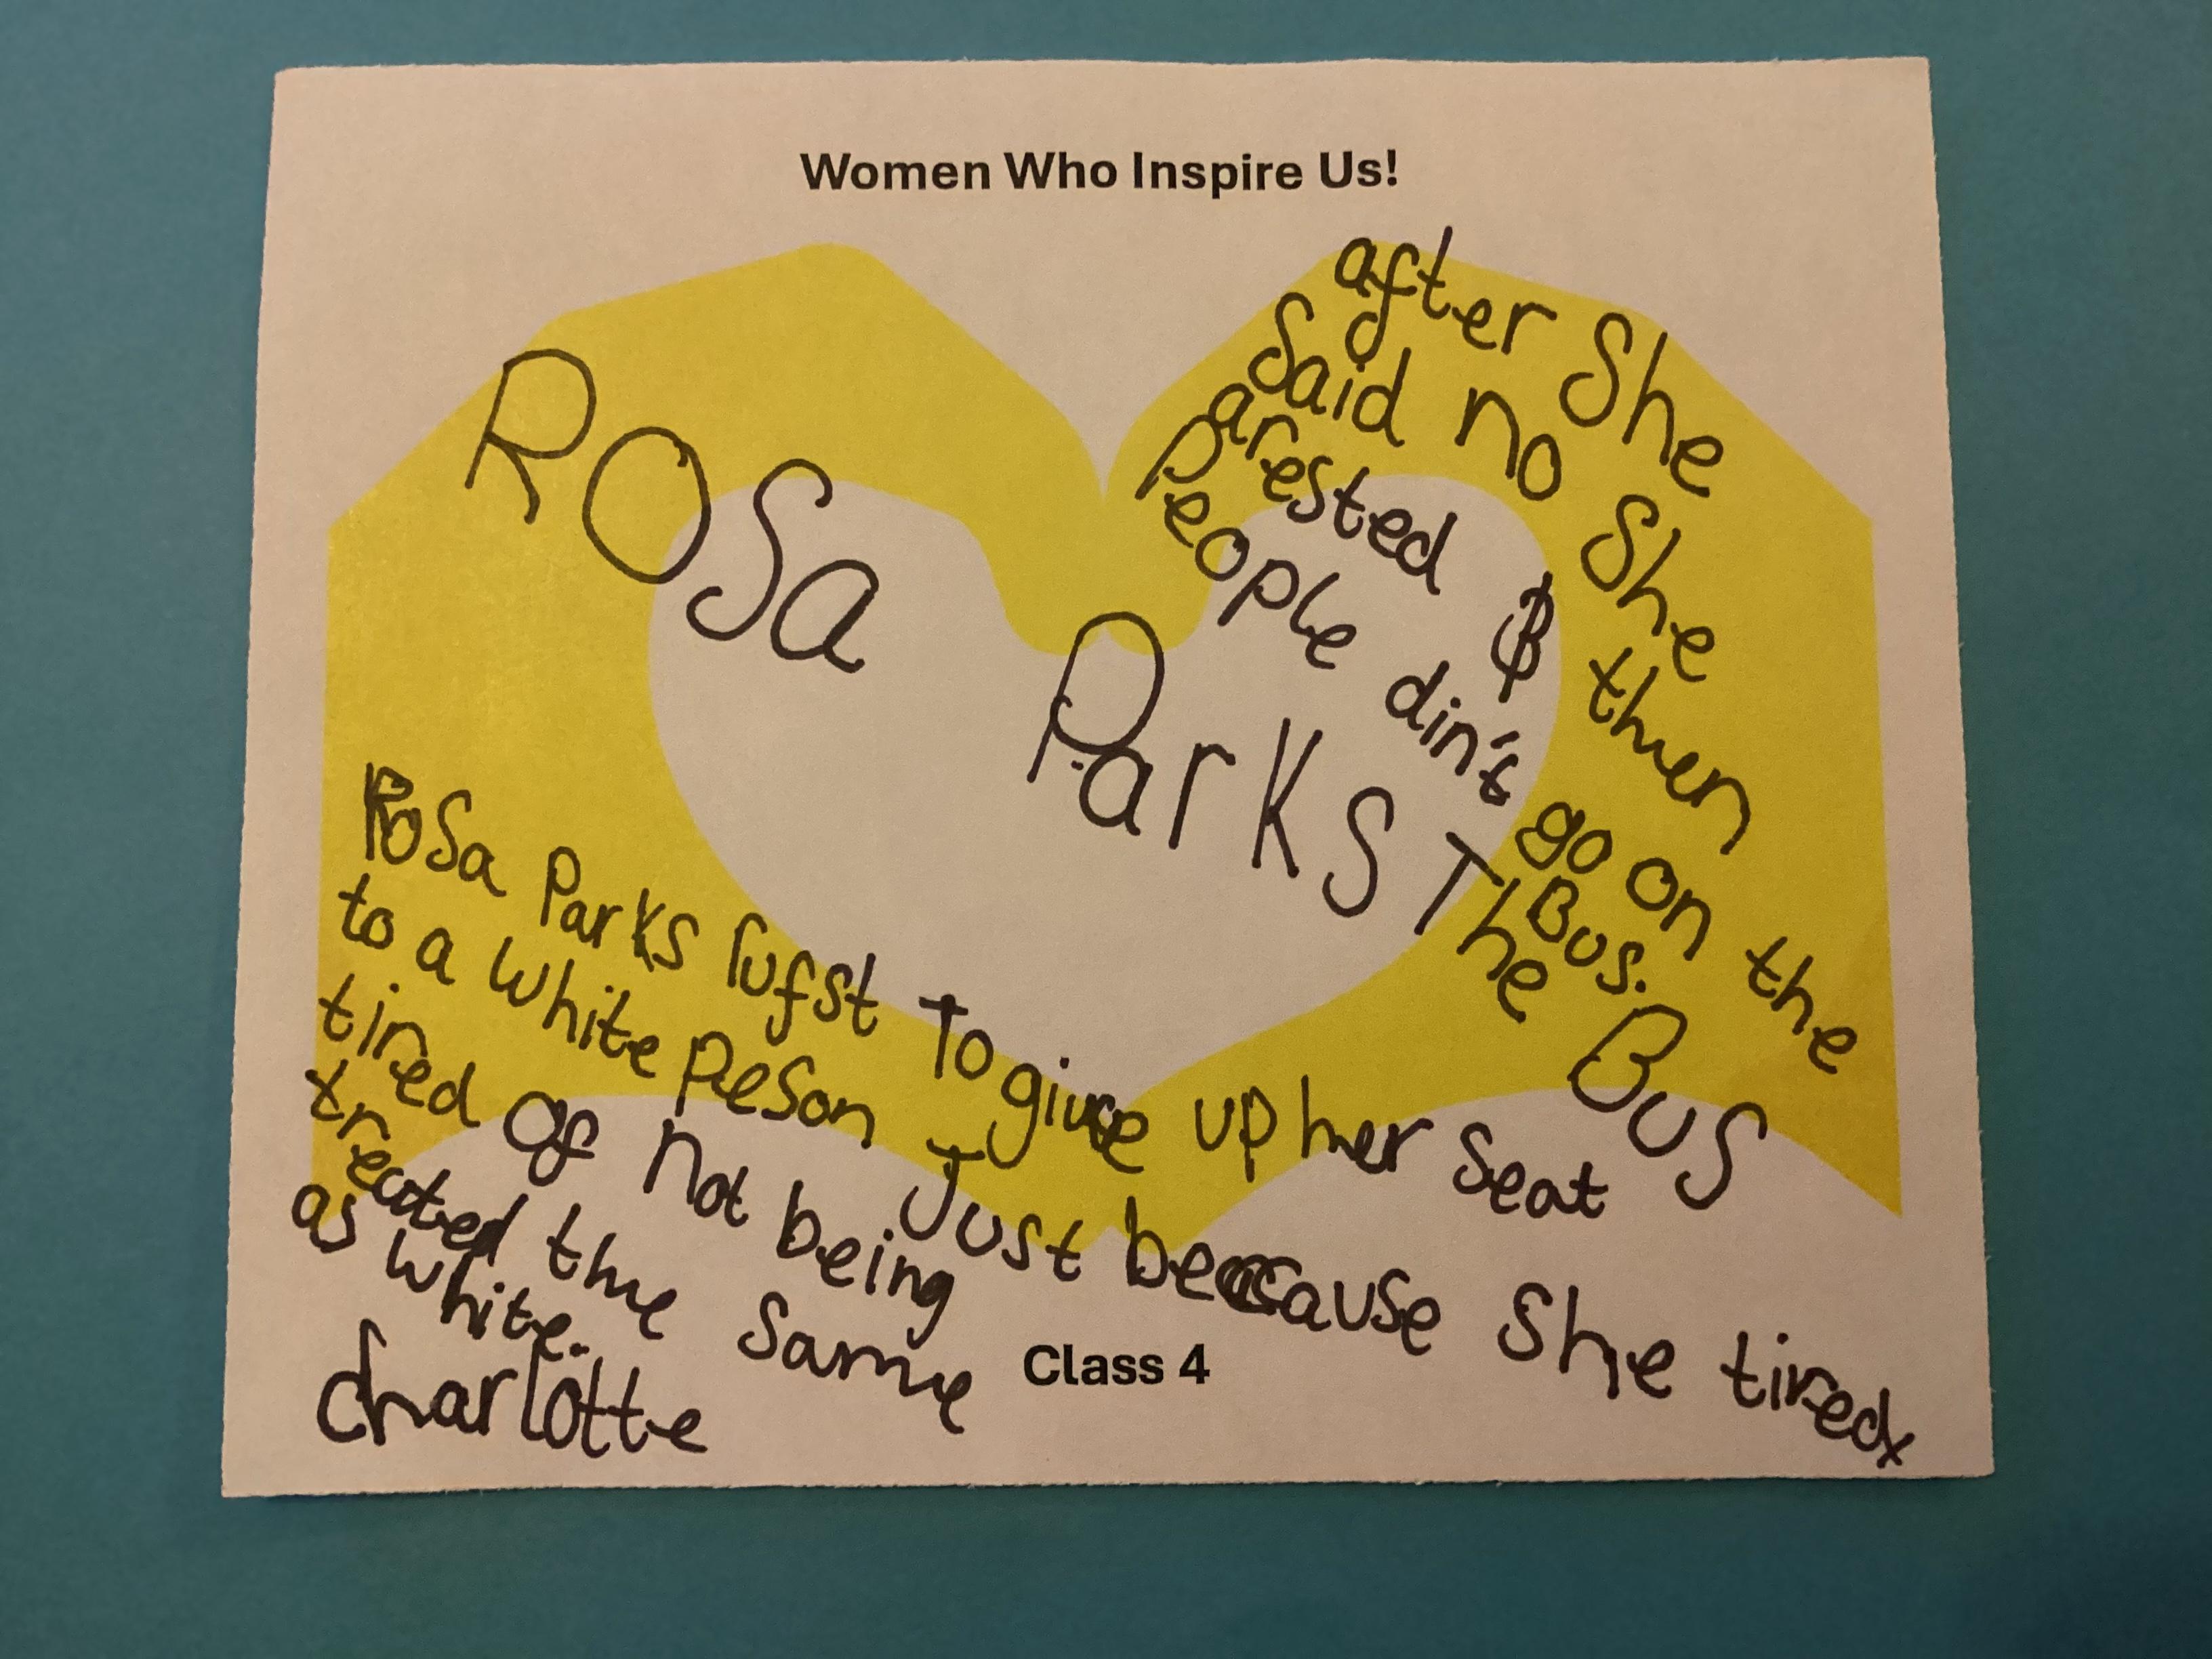 Women Who Inspire Us!
ROSa ParKS The BUS
Rosa Parks rufst To give up her Seat
to a White Peson Just because She tired
tired of not being
treated the Same
as white.
after She
Said no She
arested then
People din't go on the
Bus.
charlotte
Class 4